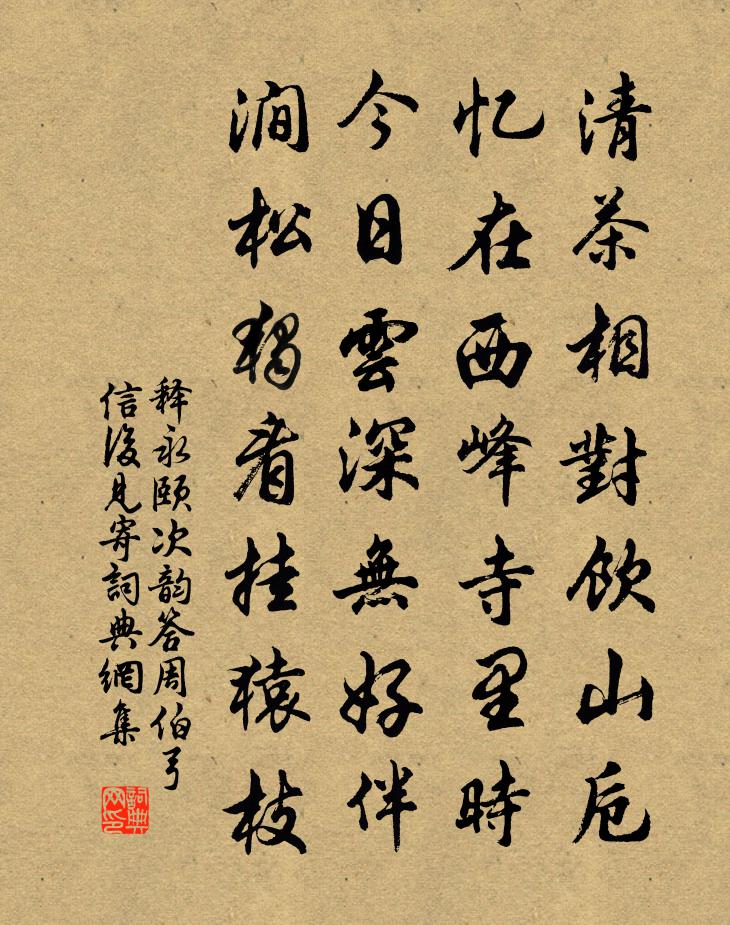 清茶相對飲山卮
忆在西峰寺里時
今日雲深無好伴
澗松猶看挂猿枝
释永颐次韵答周伯弓
信後見寄詞典網集
詞典网印